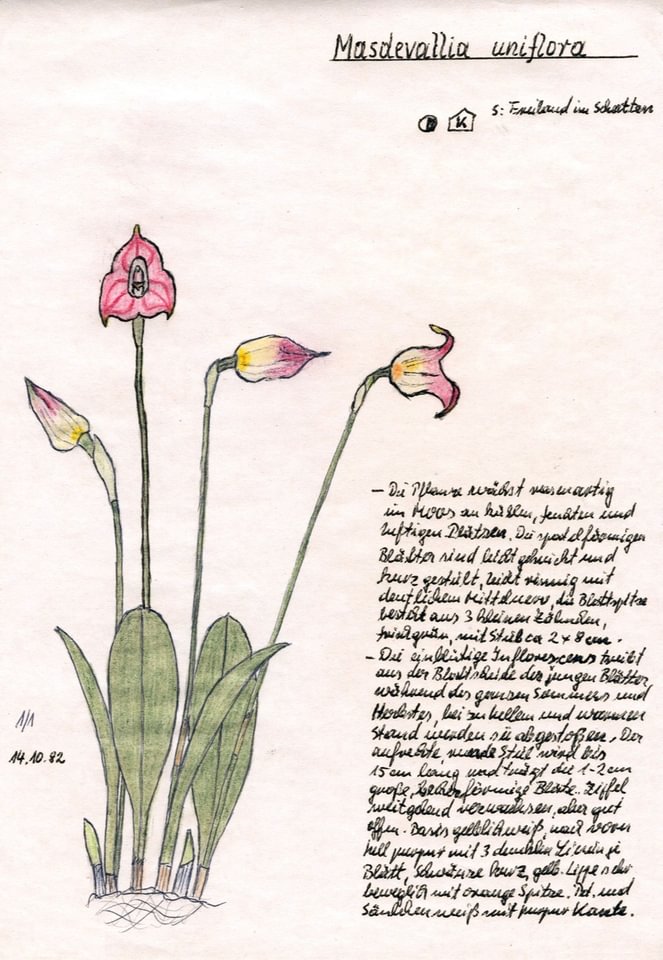 Masdevallia uniflora
K
S: Freiland im Schatten
– Die Pflanze wächst rasenartig
im Moos an kühlen, feuchten und
luftigen Plätzen. Die spatelförmigen
Blätter sind leicht geknickt und
kurz gestielt, leicht rinnig mit
deutlichem Mittelnerv, die Blattspitze
besteht aus 3 kleinen Zähnchen,
frischgrün, mit Stiel ca 2 x 8 cm.
– Die einblütige Infloreszens treibt
aus der Blattscheide der jungen Blätter
während des ganzen Sommers und
Herbstes, bei zu hellem und warmem
Stand werden sie abgestoßen. Der
aufrechte, runde Stiel wird bis
15 cm lang und trägt die 1-2 cm
große, becherförmige Blüte. Zipfel
weitgehend verwachsen, aber gut
offen. Basis gelblichweiß, nach vorn
hell purpur mit 3 dunklen Linien je
Blatt, Schwänze kurz, gelb. Lippe sehr
beweglich mit orange Spitze. Pet. und
Säulchen weiß mit purpur Kante.
1/1
14.10.82